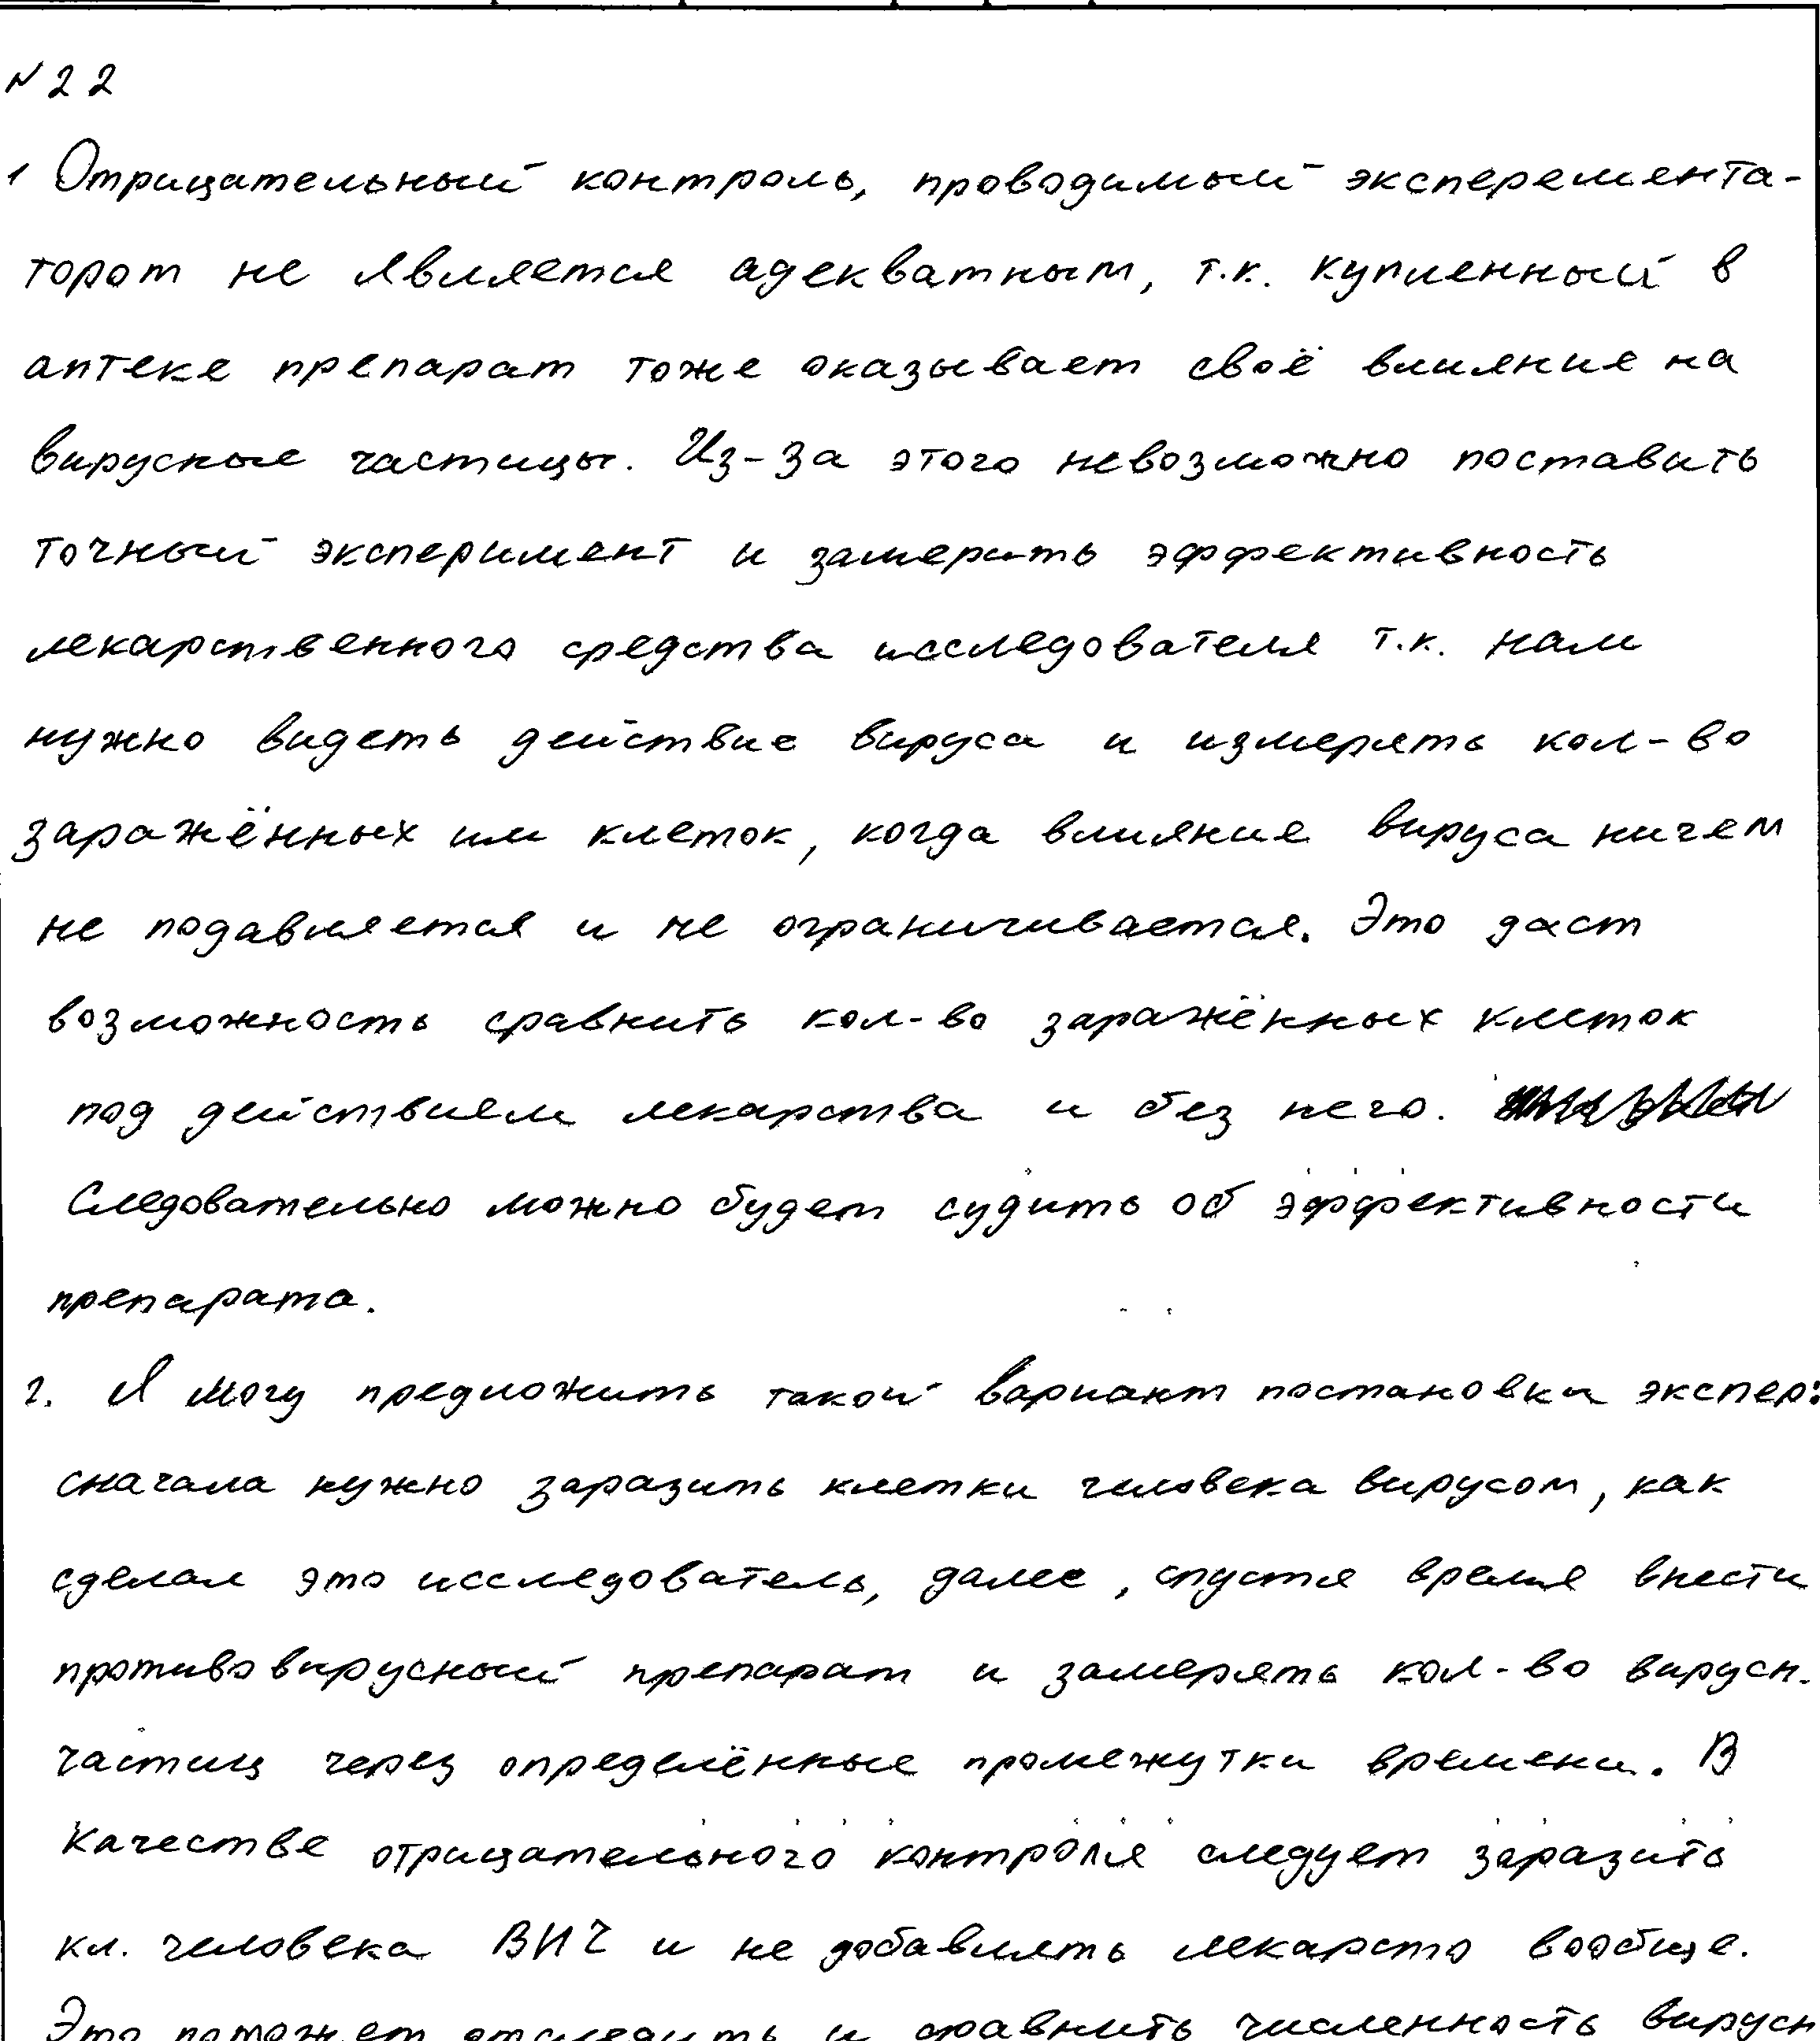 №22
1 Отрицательный контроль, проводимый эксперемента-
тором не является адекватным, т.к. купленный в
аптеке препарат тоже оказывает своё влияние на
вирусные частицы. Из-за этого невозможно поставить
точный эксперимент и замерить эффективность
лекарственного средства исследователя т.к. нам
нужно видеть действие вируса и измерять кол-во
заражённых им клеток, когда влияние вируса ничем
не подавляется и не ограничивается. Это даст
возможность сравнить кол-во заражённых клеток
под действием лекарства и без него.
Следовательно можно будет судить об эффективности
препарата.
2. Я могу предложить такой вариант постановки экспер:
сначала нужно заразить клетки человека вирусом, как
сделал это исследователь, далее, спустя время внести
противовирусный препарат и замерять кол-во вирусн.
частиц через определённые промежутки времени. В
качестве отрицательного контроля следует заразить
кл. человека ВИЧ и не добавлять лекарсто вообще.
Это поможет отследить и сравнить численность вирусн